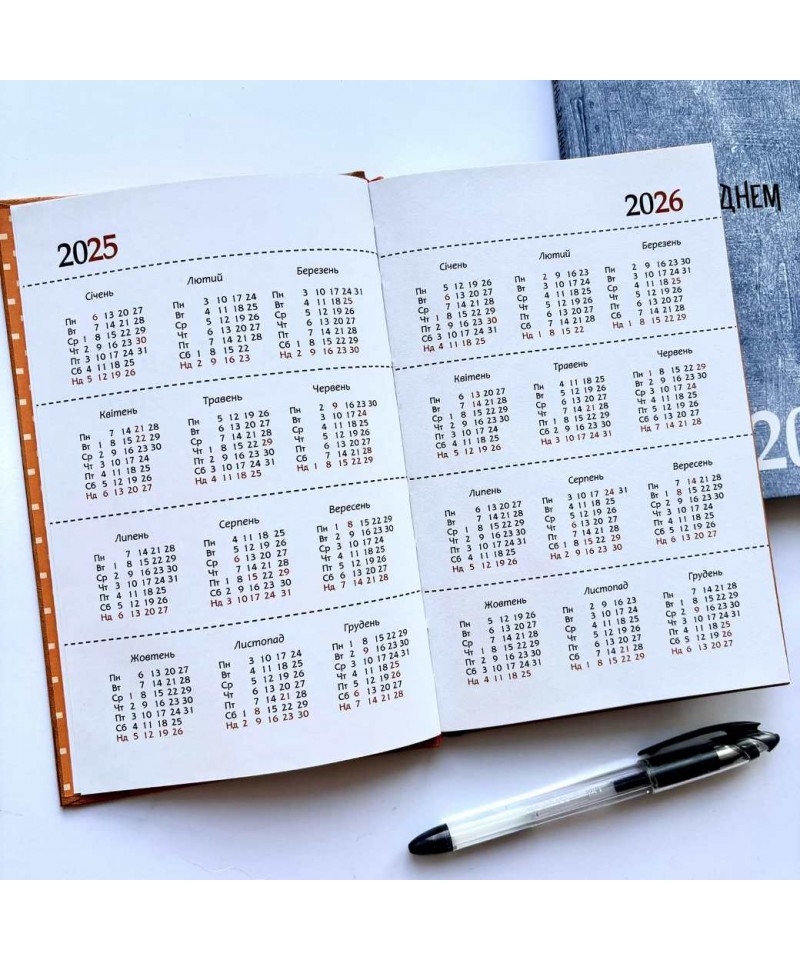 2025
Січень
Пн 6 13 20 27
Вт 7 14 21 28
Ср 1 8 15 22 29
Чт 2 9 16 23 30
Пт 3 10 17 24 31
Сб 4 11 18 25
Нд 5 12 19 26
Лютий
Пн 3 10 17 24
Вт 4 11 18 25
Ср 5 12 19 26
Чт 6 13 20 27
Пт 7 14 21 28
Сб 1 8 15 22
Нд 2 9 16 23
Березень
Пн 3 10 17 24 31
Вт 4 11 18 25
Ср 5 12 19 26
Чт 6 13 20 27
Пт 7 14 21 28
Сб 1 8 15 22 29
Нд 2 9 16 23 30
Квітень
Пн 7 14 21 28
Вт 1 8 15 22 29
Ср 2 9 16 23 30
Чт 3 10 17 24
Пт 4 11 18 25
Сб 5 12 19 26
Нд 6 13 20 27
Травень
Пн 5 12 19 26
Вт 6 13 20 27
Ср 7 14 21 28
Чт 1 8 15 22 29
Пт 2 9 16 23 30
Сб 3 10 17 24 31
Нд 4 11 18 25
Червень
Пн 2 9 16 23 30
Вт 3 10 17 24
Ср 4 11 18 25
Чт 5 12 19 26
Пт 6 13 20 27
Сб 7 14 21 28
Нд 1 8 15 22 29
Липень
Пн 7 14 21 28
Вт 1 8 15 22 29
Ср 2 9 16 23 30
Чт 3 10 17 24 31
Пт 4 11 18 25
Сб 5 12 19 26
Нд 6 13 20 27
Серпень
Пн 4 11 18 25
Вт 5 12 19 26
Ср 6 13 20 27
Чт 7 14 21 28
Пт 1 8 15 22 29
Сб 2 9 16 23 30
Нд 3 10 17 24 31
Вересень
Пн 1 8 15 22 29
Вт 2 9 16 23 30
Ср 3 10 17 24
Чт 4 11 18 25
Пт 5 12 19 26
Сб 6 13 20 27
Нд 7 14 21 28
Жовтень
Пн 6 13 20 27
Вт 7 14 21 28
Ср 1 8 15 22 29
Чт 2 9 16 23 30
Пт 3 10 17 24 31
Сб 4 11 18 25
Нд 5 12 19 26
Листопад
Пн 3 10 17 24
Вт 4 11 18 25
Ср 5 12 19 26
Чт 6 13 20 27
Пт 7 14 21 28
Сб 1 8 15 22 29
Нд 2 9 16 23 30
Грудень
Пн 1 8 15 22 29
Вт 2 9 16 23 30
Ср 3 10 17 24 31
Чт 4 11 18 25
Пт 5 12 19 26
Сб 6 13 20 27
Нд 7 14 21 28
2026
Січень
Пн 5 12 19 26
Вт 6 13 20 27
Ср 7 14 21 28
Чт 1 8 15 22 29
Пт 2 9 16 23 30
Сб 3 10 17 24 31
Нд 4 11 18 25
Лютий
Пн 2 9 16 23
Вт 3 10 17 24
Ср 4 11 18 25
Чт 5 12 19 26
Пт 6 13 20 27
Сб 7 14 21 28
Нд 1 8 15 22
Березень
Пн 2 9 16 23 30
Вт 3 10 17 24 31
Ср 4 11 18 25
Чт 5 12 19 26
Пт 6 13 20 27
Сб 7 14 21 28
Нд 1 8 15 22 29
Квітень
Пн 6 13 20 27
Вт 7 14 21 28
Ср 1 8 15 22 29
Чт 2 9 16 23 30
Пт 3 10 17 24
Сб 4 11 18 25
Нд 5 12 19 26
Травень
Пн 4 11 18 25
Вт 5 12 19 26
Ср 6 13 20 27
Чт 7 14 21 28
Пт 1 8 15 22 29
Сб 2 9 16 23 30
Нд 3 10 17 24 31
Червень
Пн 1 8 15 22 29
Вт 2 9 16 23 30
Ср 3 10 17 24
Чт 4 11 18 25
Пт 5 12 19 26
Сб 6 13 20 27
Нд 7 14 21 28
Липень
Пн 6 13 20 27
Вт 7 14 21 28
Ср 1 8 15 22 29
Чт 2 9 16 23 30
Пт 3 10 17 24 31
Сб 4 11 18 25
Нд 5 12 19 26
Серпень
Пн 3 10 17 24 31
Вт 4 11 18 25
Ср 5 12 19 26
Чт 6 13 20 27
Пт 7 14 21 28
Сб 1 8 15 22 29
Нд 2 9 16 23 30
Вересень
Пн 7 14 21 28
Вт 1 8 15 22 29
Ср 2 9 16 23 30
Чт 3 10 17 24
Пт 4 11 18 25
Сб 5 12 19 26
Нд 6 13 20 27
Жовтень
Пн 5 12 19 26
Вт 6 13 20 27
Ср 7 14 21 28
Чт 1 8 15 22 29
Пт 2 9 16 23 30
Сб 3 10 17 24 31
Нд 4 11 18 25
Листопад
Пн 2 9 16 23
Вт 3 10 17 24
Ср 4 11 18 25
Чт 5 12 19 26
Пт 6 13 20 27
Сб 7 14 21 28
Нд 1 8 15 22 29
Грудень
Пн 7 14 21 28
Вт 1 8 15 22 29
Ср 2 9 16 23 30
Чт 3 10 17 24 31
Пт 4 11 18 25
Сб 5 12 19 26
Нд 6 13 20 27
ДНЕМ
20